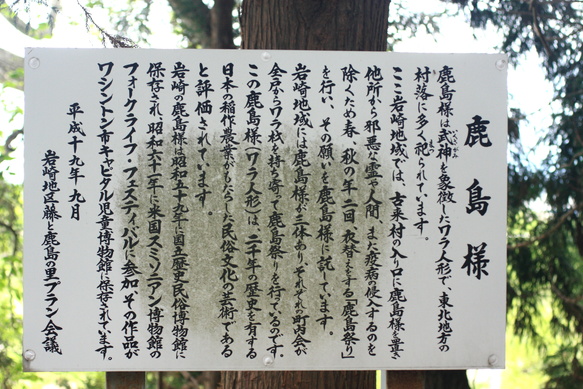 鹿島様
鹿島様は武神を象徴したワラ人形で、東北地方の
村落に多く祀られています。
ここ岩崎地域では、古来村の入り口に鹿島様を置き
他所から邪悪な霊や人間、また疫病の侵入するのを
除くため春、秋の年二回衣替えをする「鹿島祭り」
を行い、その願いを鹿島様に託しています。
岩崎地域には鹿島様が三体あり、それぞれの町内会が
全戸からワラ役を持ち寄って鹿島祭りを行っているのです。
この鹿島様(ワラ人形)は、二千年の歴史を有する
日本の稲作農業がもたらした民俗文化の芸術である
と評価されています。
岩崎の鹿島様は昭和五十九年に国立歴史民俗博物館に
保存され、昭和六十一年に米国スミソニアン博物館の
フォークライフ・フェスティバルに参加その作品が
ワシントン市キャピタル児童博物館に保存されています。
平成十九年九月
岩崎地区藤と鹿島の里プラン会議